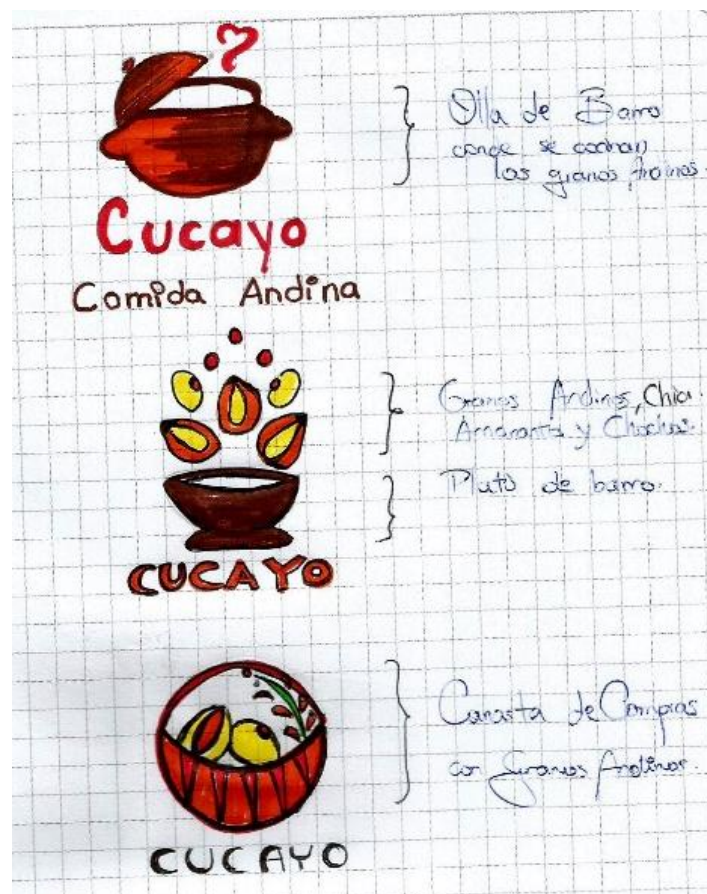 Cucayo
Comida Andina
Olla de Barro
donde se cocinan
los granos Andinos.
CUCAYO
Granos Andinos, Chia
Amaranto y Chochos.
Plato de barro.
CUCAYO
Canasta de Compras
con Granos Andinos.